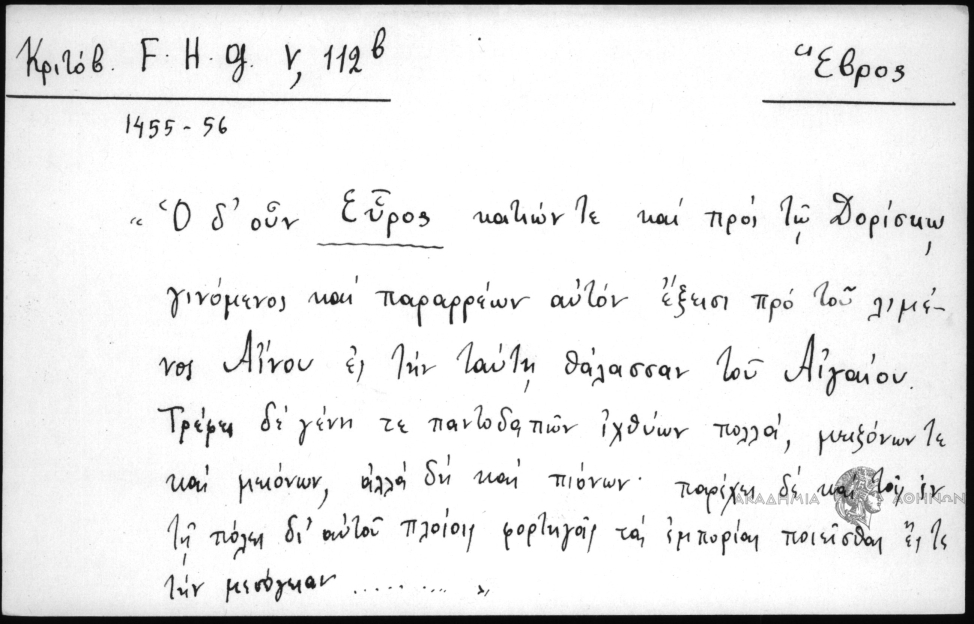 Κριτόβ. F. H. g. V, 112 β
Ἕβρος
1455-56
«Ὁ δ' οὖν Εὖρος κατιών τε καί πρός τῷ Δορίσκῳ
γινόμενος καί παραρρέων αὐτόν ἔξεισι πρό τοῦ λιμέ-
νος Αἴνου ἐς τήν ταύτῃ θάλασσαν τοῦ Αἰγαίου.
Τρέφει δέ γένη τε παντοδαπῶν ἰχθύων πολλά, μειζόνων τε
καί μειόνων, ἀλλά δή καί πιόνων· παρέχει δέ καί τοῖς ἐν
τῇ πόλει δι' αὐτοῦ πλοίοις φορτηγοῖς τάς ἐμπορίας ποιεῖσθαι ἔς τε
τήν μεσόγειαν ......... »
ΑΚΑΔΗΜΙΑ ΑΘΗΝΩΝ